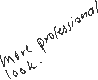 More professional
look.